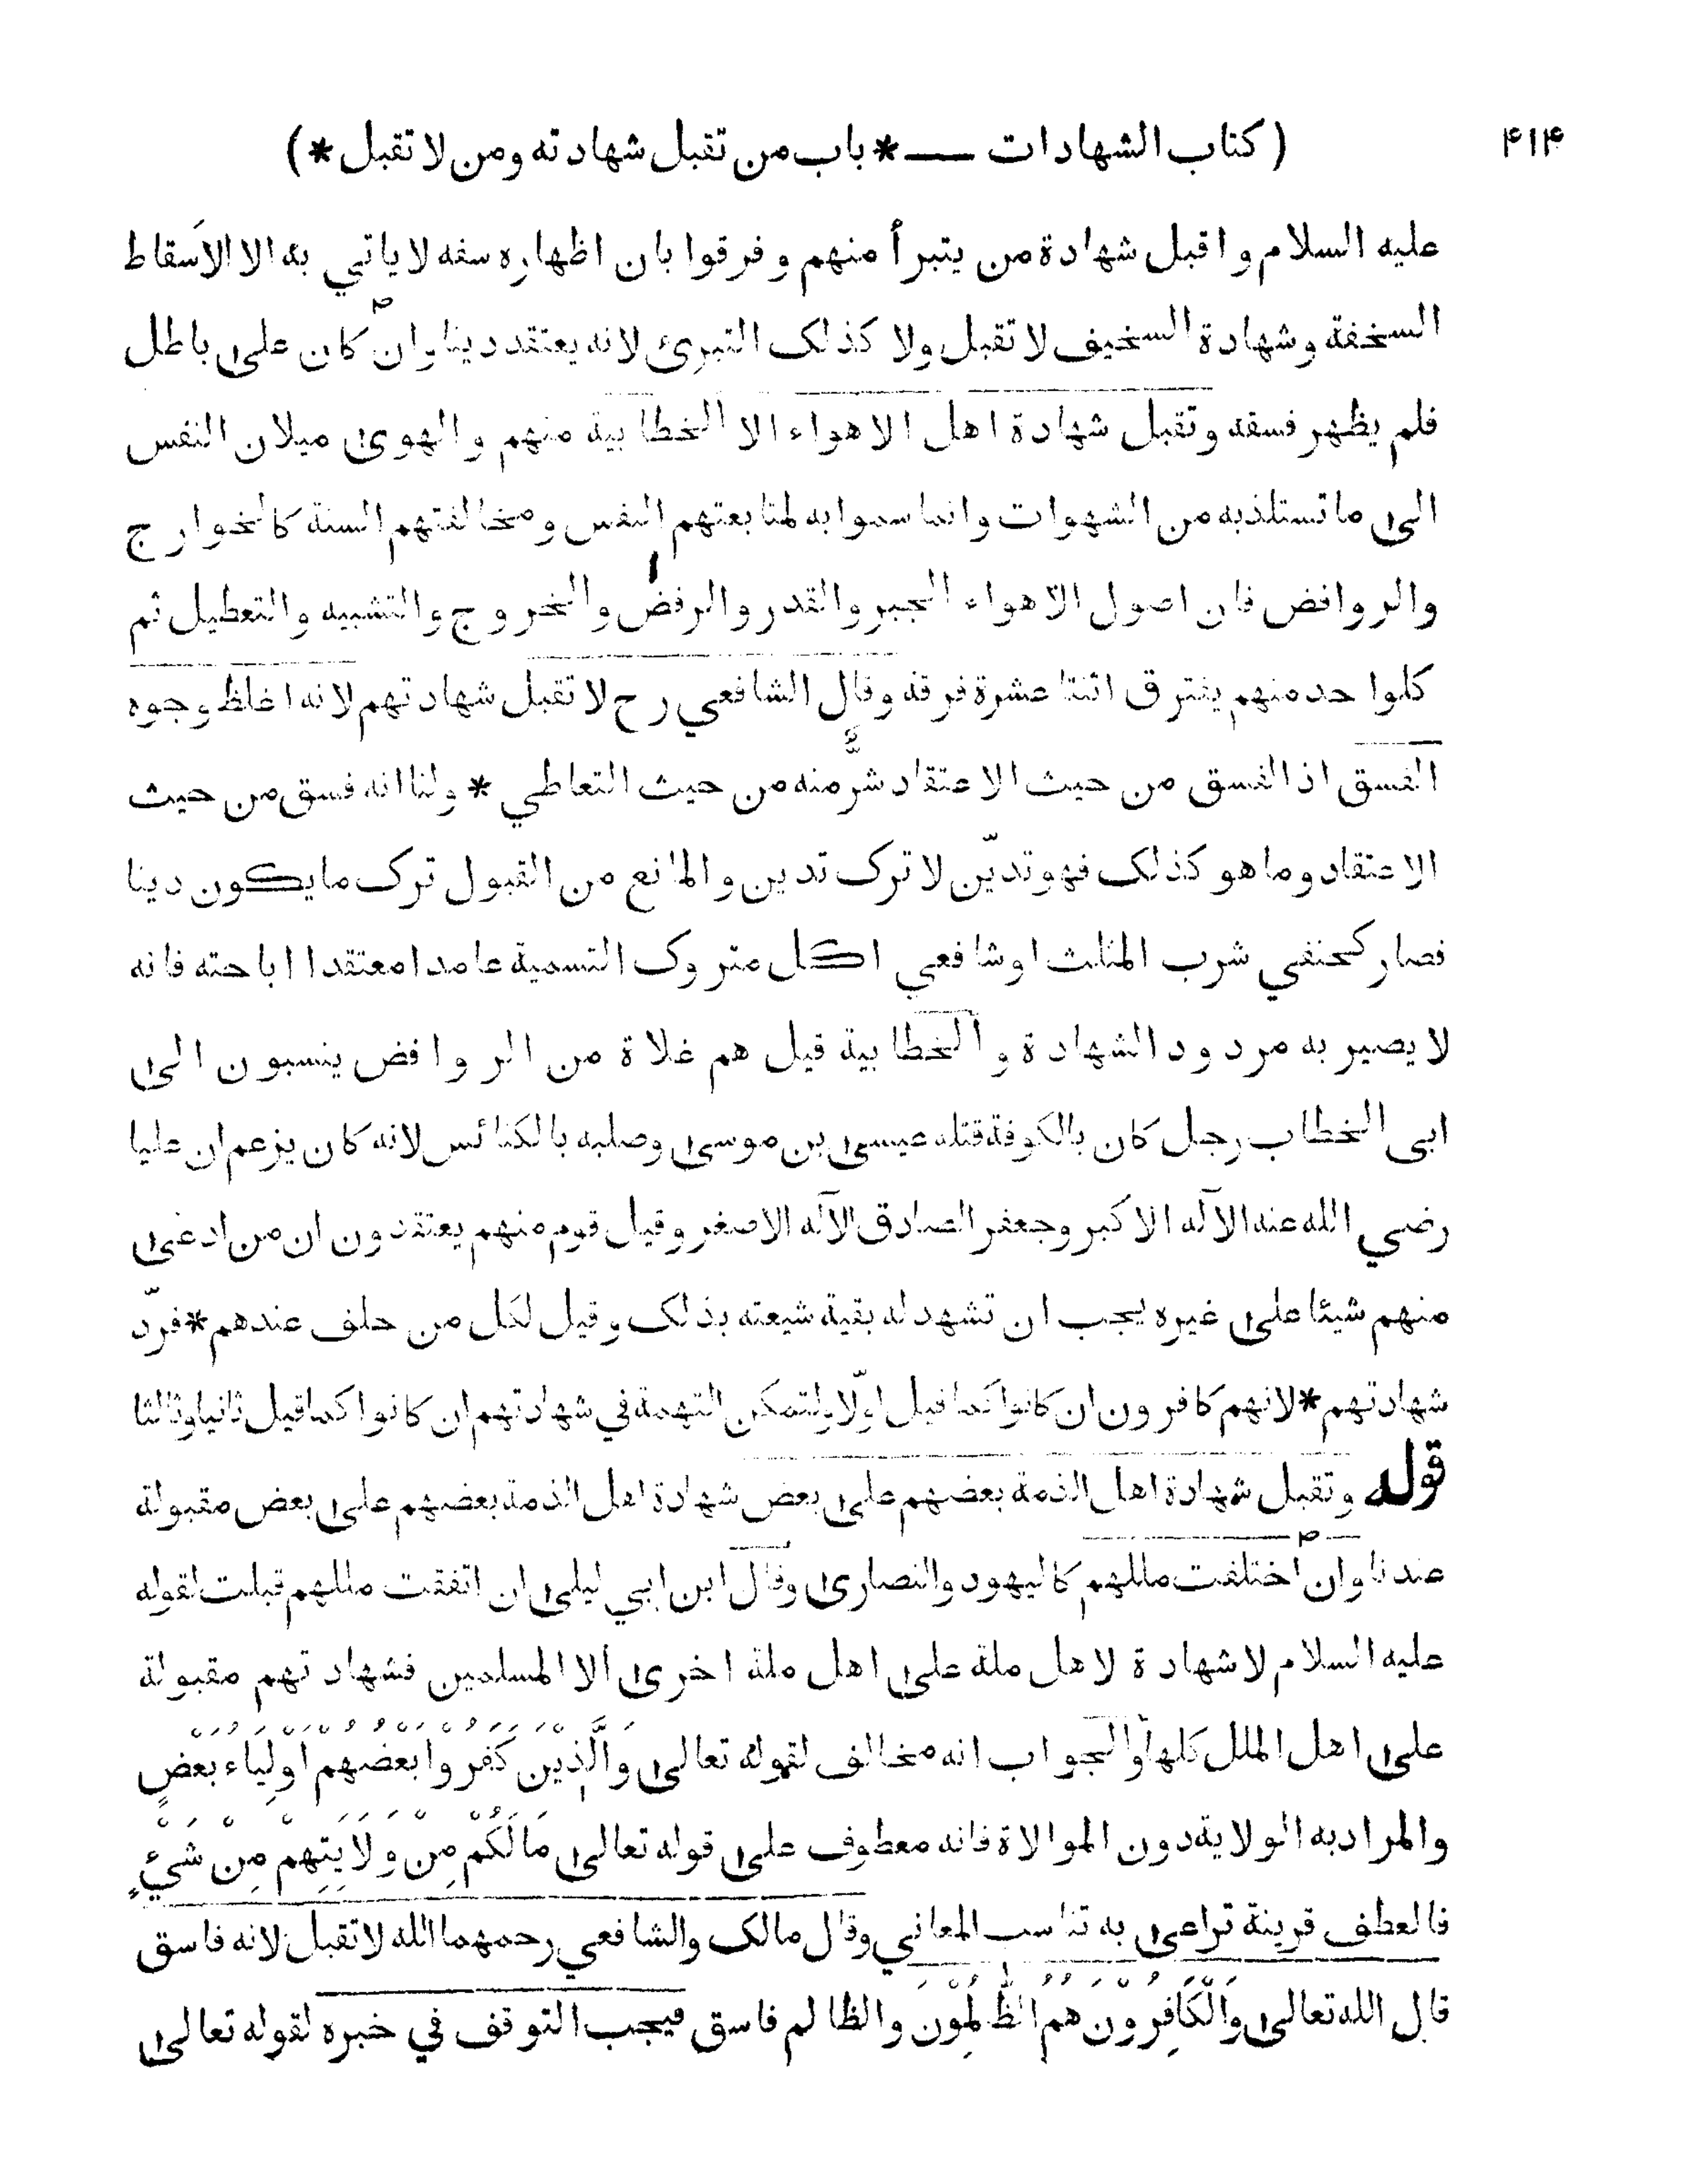 ۴۱۴ ( كتاب الشهادات ـــ * باب من تقبل شهادته ومن لا تقبل * )
عليه السلام و اقبل شهادة من يتبرأ منهم و فرقوا بان اظهاره سفه لا ياتي به الا الاَسقاط
السخفة وشهادة السخيف لا تقبل ولا كذلک التبرئ لانه يعتقد دينا وان كان على باطل
فلم يظهر فسقه وتقبل شهادة اهل الاهواء الا الخطابية منهم والهوى ميلان النفس
الى ما تستلذبه من الشهوات وانما سموا به لمتابعتهم النفس ومخالفتهم السنة كالخوارج
والروافض فان اصول الاهواء الجبر والقدر والرفض والخروج والتشبيه والتعطيل ثم
كلوا حد منهم يفترق اثنتا عشرة فرقة وقال الشافعي رح لا تقبل شهادتهم لانه اغلظ وجوه
الفسق اذ الفسق من حيث الاعتقاد شرٌّ منه من حيث التعاطي * ولنا انه فسق من حيث
الاعتقاد وما هو كذلک فهو تديّن لا ترک تدين والمانع من القبول ترک ما يكون دينا
فصار كحنفي شرب المثلث او شافعي اكل متروک التسمية عامدا معتقدا اباحته فانه
لا يصير به مردود الشهادة والخطابية قيل هم غلاة من الروافض ينسبون الى
ابى الخطاب رجل كان بالكوفة قتله عيسى بن موسى وصلبه بالكنائس لانه كان يزعم ان عليا
رضي الله عنه الآله الاكبر وجعفر الصادق الآله الاصغر وقيل قوم منهم يعتقدون ان من ادعى
منهم شيئا على غيره يجب ان تشهد له بقية شيعته بذلک وقيل لكل من حلف عندهم * فرّد
شهادتهم * لانهم كافرون ان كانوا كما قيل اولّا ولتمكن التهمة في شهادتهم ان كانوا كما قيل ثانيا وثالثا
قوله وتقبل شهادة اهل الذمة بعضهم على بعض شهادة اهل الذمة بعضهم على بعض مقبولة
عندنا وان اختلفت مللهم كاليهود والنصارى وقال ابن ابي ليلى ان اتفقت مللهم قبلت لقوله
عليه السلام لا شهادة لاهل ملة على اهل ملة اخرى الا المسلمين فشهادتهم مقبولة
على اهل الملل كلها والجواب انه مخالف لقوله تعالى وَالَّذِيْنَ كَفَرُوا بَعْضُهُمْ اَوْلِيَاءُ بَعْضٍ
والمراد به الولاية دون الموالاة فانه معطوف على قوله تعالى مَا لَكُمْ مِنْ وَلَايَتِهِمْ مِنْ شَيْءٍ
فالعطف قرينة تراعى به تناسب المعاني وقال مالک والشافعي رحمهما الله لا تقبل لانه فاسق
قال الله تعالى وَالْكَافِرُوْنَ هُمُ الظَّالِمُوْنَ والظالم فاسق فيجب التوقف في خبره لقوله تعالى